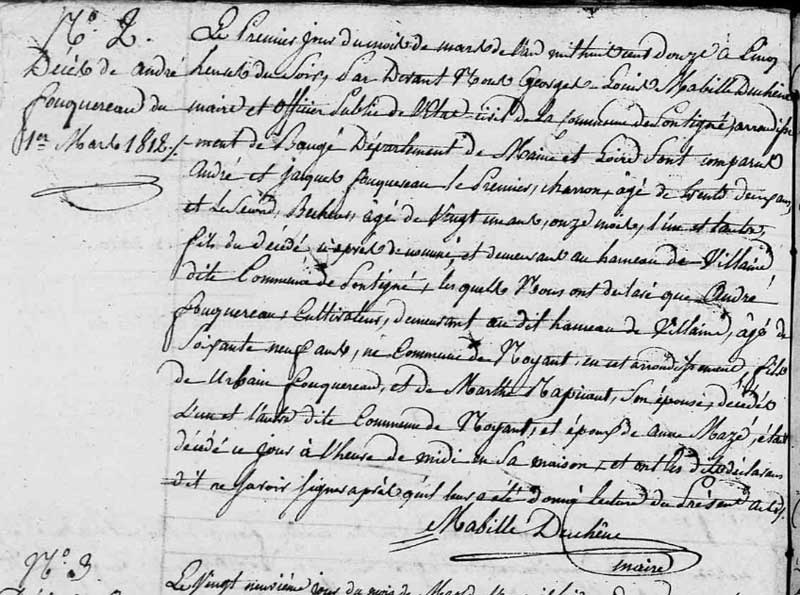 N.º 2.
Décès de andré
fouquereau du
1er Mars 1812./.
Le Premier jour du mois de mars de l'an mil huit cent douze a Cinq
heures du Soir, Par Devant Nous Georges-Louis Mabille Duchêne
maire et officier Public de l'Etat-civil de la Commune de Pontigné, arrondisse
-ment de Baugé Département de Maine et Loire Sont comparus
André et jacques fouquereau le Premier, charron, âgé de trente deux ans,
et Le Second, Becheur, âgé de Vingt un ans, onze mois, l'un et l'autre,
fils du décédé ci après denommé, et demeurant au hameau de Villaine
dite Commune de Pontigné, lesquels Nous ont declaré que André
fouquereau, Cultivateur, demeurant au dit hameau de Villaine, âgé de
Soixante neuf ans, né Commune de Noyant, en cet arrondissement, fils
de Urbain fouquereau, et de Marthe Son épouse, décédés
L'un et l'autre dite Commune de Noyant, et époux de anne Mazé, était
décédé ce jour à l'heure de midi en Sa maison, et ont les dits déclarans
dit ne Savoir Signer après qu'il leur a été donné lecture du Présent acte./.
Mabille Duchêne
maire
N.º 3.
Le Vingt neuvième jour du mois de Mars